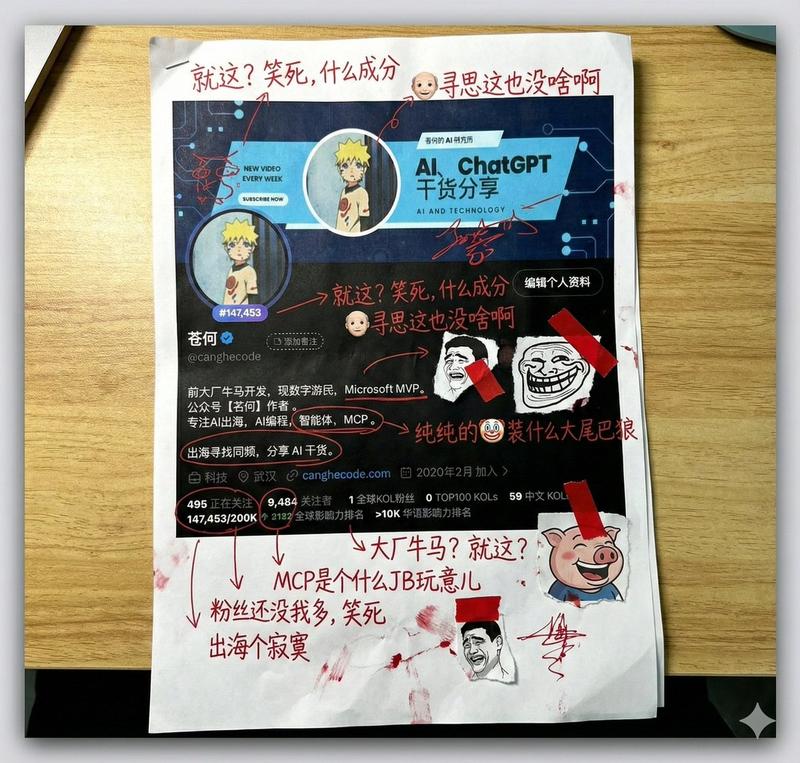 就这？笑死，什么成分
寻思这也没啥啊
NEW VIDEO
EVERY WEEK
SUBSCRIBE NOW
AI、ChatGPT
干货分享
AI AND TECHNOLOGY
编辑个人资料
#147,453
就这？笑死，什么成分
寻思这也没啥啊
苍何
添加备注
@canghecode
前大厂牛马开发，现数字游民，Microsoft MVP。
公众号【茗何】作者。
专注AI出海，AI编程，智能体，MCP。
纯纯的🤡装什么大尾巴狼
出海寻找同频，分享 AI 干货。
科技 武汉 canghecode.com 2020年2月 加入
495 正在关注 9,484 关注者 1 全球KOL粉丝 0 TOP100 KOLs 59 中文 KOL
147,453/200K ↑ 2182 全球影响力排名 >10K 华语影响力排名
大厂牛马？就这？
MCP是个什么JB玩意儿
粉丝还没我多，笑死
出海个寂寞